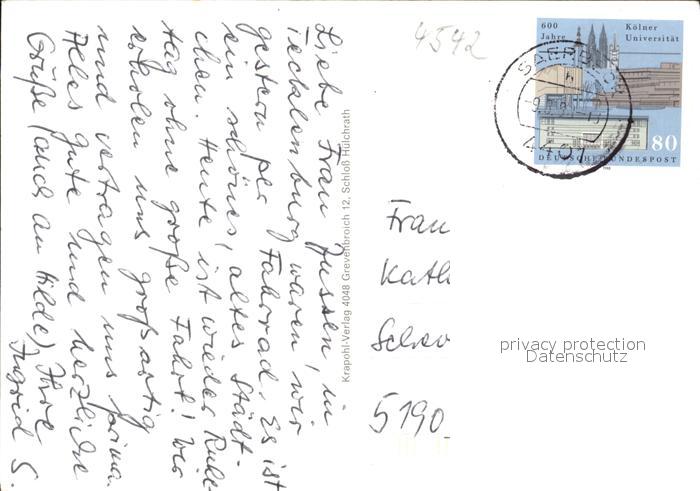 Liebe Frau Jussen, in
Tecklenburg waren wir
gestern per Fahrrad. Es ist
ein schönes, altes Städt-
chen. Heute ist wieder Ruhe-
tag ohne große Fahrt! Wir
erholen uns großartig
und vertragen uns prima.
Alles Gute und herzliche
Grüße (auch an Hilde), Ihre
Ingrid S.
Krapohl-Verlag 4048 Grevenbroich 12, Schloß Hülchrath
4542
600
Jahre
Kölner
Universität
80
DEUTSCHE BUNDESPOST
1988
SAERBECK
4401
Frau
Kath
5190
privacy protection
Datenschutz